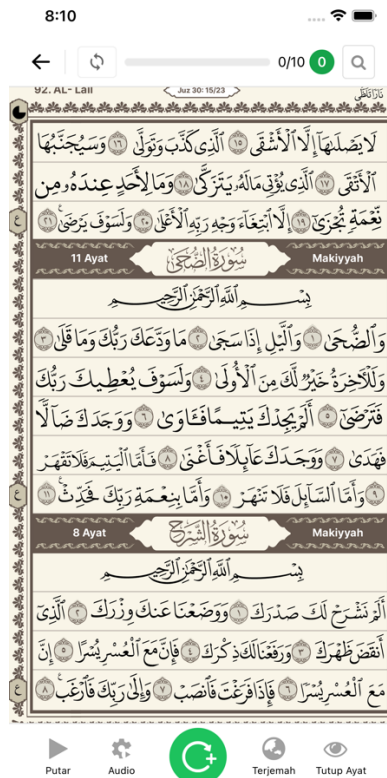 8:10
0/10 0
92. AL- Lail Juz 30: 15/23 نَارًا تَلَظَّىٰ
لَا يَصْلَىٰهَآ إِلَّا ٱلْأَشْقَى ١٥ ٱلَّذِى كَذَّبَ وَتَوَلَّىٰ ١٦ وَسَيُجَنَّبُهَا
ٱلْأَتْقَى ١٧ ٱلَّذِى يُؤْتِى مَالَهُۥ يَتَزَكَّىٰ ١٨ وَمَا لِأَحَدٍ عِندَهُۥ مِن
نِّعْمَةٍ تُجْزَىٰٓ ١٩ إِلَّا ٱبْتِغَآءَ وَجْهِ رَبِّهِ ٱلْأَعْلَىٰ ٢٠ وَلَسَوْفَ يَرْضَىٰ ٢١
ع
11 Ayat سُورَةُ الضُّحَىٰ Makiyyah
بِسْمِ ٱللَّهِ ٱلرَّحْمَٰنِ ٱلرَّحِيمِ
وَٱلضُّحَىٰ ١ وَٱلَّيْلِ إِذَا سَجَىٰ ٢ مَا وَدَّعَكَ رَبُّكَ وَمَا قَلَىٰ ٣
وَلَلْءَاخِرَةُ خَيْرٌ لَّكَ مِنَ ٱلْأُولَىٰ ٤ وَلَسَوْفَ يُعْطِيكَ رَبُّكَ
فَتَرْضَىٰٓ ٥ أَلَمْ يَجِدْكَ يَتِيمًا فَـَٔاوَىٰ ٦ وَوَجَدَكَ ضَآلًّا
فَهَدَىٰ ٧ وَوَجَدَكَ عَآئِلًا فَأَغْنَىٰ ٨ فَأَمَّا ٱلْيَتِيمَ فَلَا تَقْهَرْ
٩ وَأَمَّا ٱلسَّآئِلَ فَلَا تَنْهَرْ ١٠ وَأَمَّا بِنِعْمَةِ رَبِّكَ فَحَدِّثْ ١١
ع
8 Ayat سُورَةُ الشَّرْحِ Makiyyah
بِسْمِ ٱللَّهِ ٱلرَّحْمَٰنِ ٱلرَّحِيمِ
أَلَمْ نَشْرَحْ لَكَ صَدْرَكَ ١ وَوَضَعْنَا عَنكَ وِزْرَكَ ٢ ٱلَّذِىٓ
أَنقَضَ ظَهْرَكَ ٣ وَرَفَعْنَا لَكَ ذِكْرَكَ ٤ فَإِنَّ مَعَ ٱلْعُسْرِ يُسْرًا ٥ إِنَّ
مَعَ ٱلْعُسْرِ يُسْرًا ٦ فَإِذَا فَرَغْتَ فَٱنصَبْ ٧ وَإِلَىٰ رَبِّكَ فَٱرْغَب ٨
ع
Putar Audio Terjemah Tutup Ayat